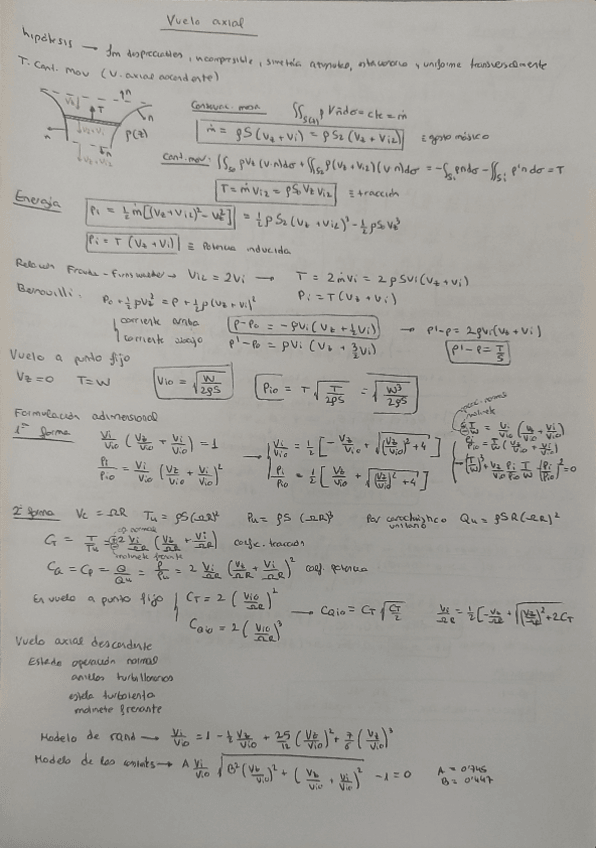 Vuelo axial
hipótesis → Sin disipación, incompresible, simetría, estacionario y uniforme transversalmente
T. Cant. mov (V. axial ascendente)
Conservac. masa ∬ ρ V n dσ = cte = ṁ
ṁ = ρS(Vz+Vi) = ρS₂(Vz+Vi2) ≡ gasto másico
Cant. mov: ∬ ρVz(v·n)dσ + ∬ ρ(Vz+Vi2)(v·n)dσ = -∫ pndσ - ∬ p'ndσ = T
T = ṁVi2 = ρS₂VzVi2 ≡ tracción
Energía
Pi = ½ṁ[(Vz+Vi2)² - Vz²] = ½ρS₂(Vz+Vi2)³ - ½ρS₀Vz³
Pi = T(Vz+Vi) ≡ Potencia inducida
Relación Froude-Finsterwalder → Vi2 = 2Vi → T = 2ṁVi = 2ρSVi(Vz+Vi)
Pi = T(Vz+Vi)
Bernouilli: P₀ + ½ρVz² = P + ½ρ(Vz+Vi)²
corriente arriba P-P₀ = -ρVi(Vz+½Vi) → P'-P = 2ρVi(Vz+Vi)
corriente abajo P'-P₀ = ρVi(Vz+3/2Vi) P'-P = T/S
Vuelo a punto fijo
Vz=0 T=W Vio = √(W/2ρS) Pio = T√(T/2ρS) = √(W³/2ρS)
Formulación adimensional
1ª forma Vi/Vio (Vz/Vio + Vi/Vio) = 1 → Vi/Vio = ½[-Vz/Vio + √((Vz/Vio)²+4)]
Pi/Pio = Vi/Vio (Vz/Vio + Vi/Vio)² Pi/Pio = ½[Vz/Vio + √((Vz/Vio)²+4)]
2ª forma Vc = ΩR Tu = ρS(ΩR)² Pu = ρS(ΩR)³ Par característico unitario Qu = ρSR(ΩR)²
CT = T/Tu = ±2 Vi/ΩR (Vz/ΩR + Vi/ΩR) coefic. tracción
normal
molinete frenante
CQ = CP = Q/Qu = P/Pu = 2 Vi/ΩR (Vz/ΩR + Vi/ΩR)² coef. potencia
En vuelo a punto fijo CT = 2(Vio/ΩR)² → CQio = CT√(CT/2) Vi/ΩR = ½[-Vz/ΩR + √((Vz/ΩR)²+2CT]
CQio = 2(Vio/ΩR)³
Vuelo axial descendente
Estado operación normal
anillos turbillonarios
estela turbulenta
molinete frenante
Modelo de rand → Vi/Vio = 1 - ½ Vz/Vio + 25/12 (Vz/Vio)² + 7/6 (Vz/Vio)³
Modelo de → A Vi/Vio √(B²(Vz/Vio)² + (Vz/Vio + Vi/Vio)²) - 1 = 0 A = 0'745
B = 0'447